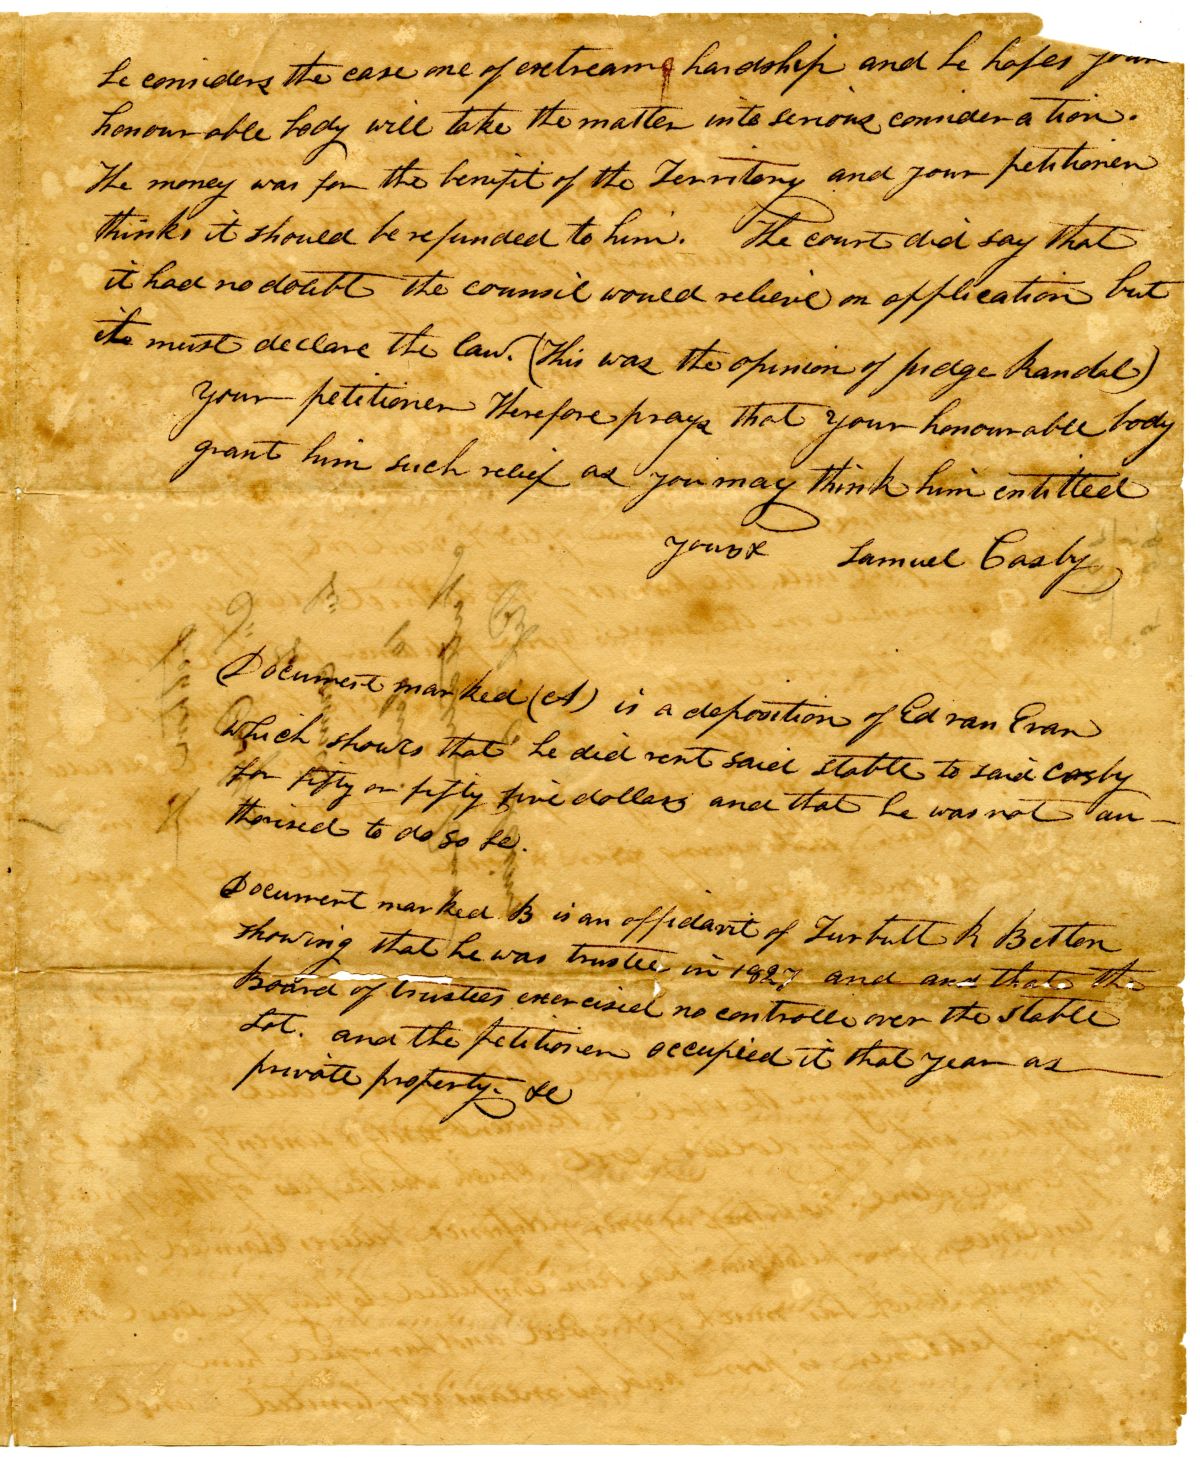 he considers the case one of extream hardship and he hopes your
honourable body will take the matter into serious consideration.
The money was for the benifit of the Territory and your petitioner
thinks it should be refunded to him. The court did say that
it had no doubt the counsil would relieve on application but
it must declare the law. (This was the opinion of judge Randal)
Your petitioner therefore prays that your honourable body
grant him such relief as you may think him entitled
yours &c Samuel Casby
Document marked (A) is a deposition of Ed van Evan
which shows that he did rent said stable to said Casby
for fifty or fifty five dollars and that he was not au-
thorised to do so &c.
Document marked B is an affidavit of Turbutt R Betton
showing that he was trustee in 1827 and and that the
Board of trustees exercised no controlle over the stable
Lot. and the petitioner occupied it that year as
private property. &c